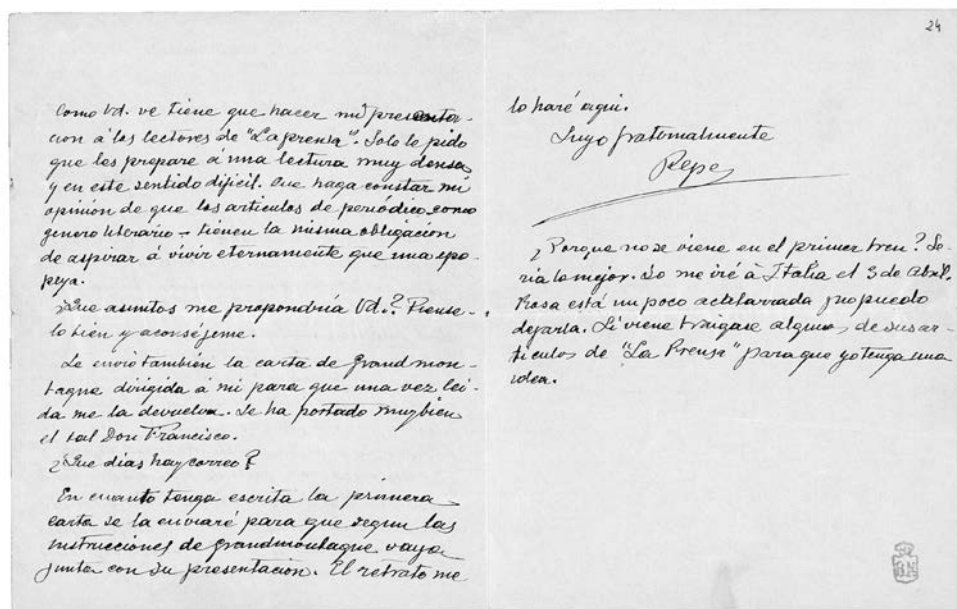 24
Como Vd. ve tiene que hacer mi presenta-
cion á los lectores de "La prensa". Solo le pido
que les prepare á una lectura muy densa
y en este sentido dificil. Que haga constar mi
opinión de que los articulos de periódico como
genero literario - tienen la misma obligacion
de aspirar á vivir eternamente que una epo-
peya.
¿Que asuntos me propondria Vd.? Piense-
lo bien y aconséjeme.
Le envio también la carta de Grandmon-
tagne dirigida á mi para que una vez lei-
da me la devuelva. Se ha portado muy bien
el tal Don Francisco.
¿Que dias hay correo?
En cuanto tenga escrita la primera
carta se la enviaré para que segun las
instrucciones de Grandmontagne vaya
junta con su presentacion. El retrato me
lo haré aqui.
Suyo fraternalmente
Pepe
¿Porque no se viene en el primer tren? Se-
ria lo mejor. Yo me iré á Italia el 3 de abril.
Rosa está un poco y no puedo
dejarla. Si viene traigase algunos de sus ar-
ticulos de "La Prensa" para que yo tenga una
idea.
BN